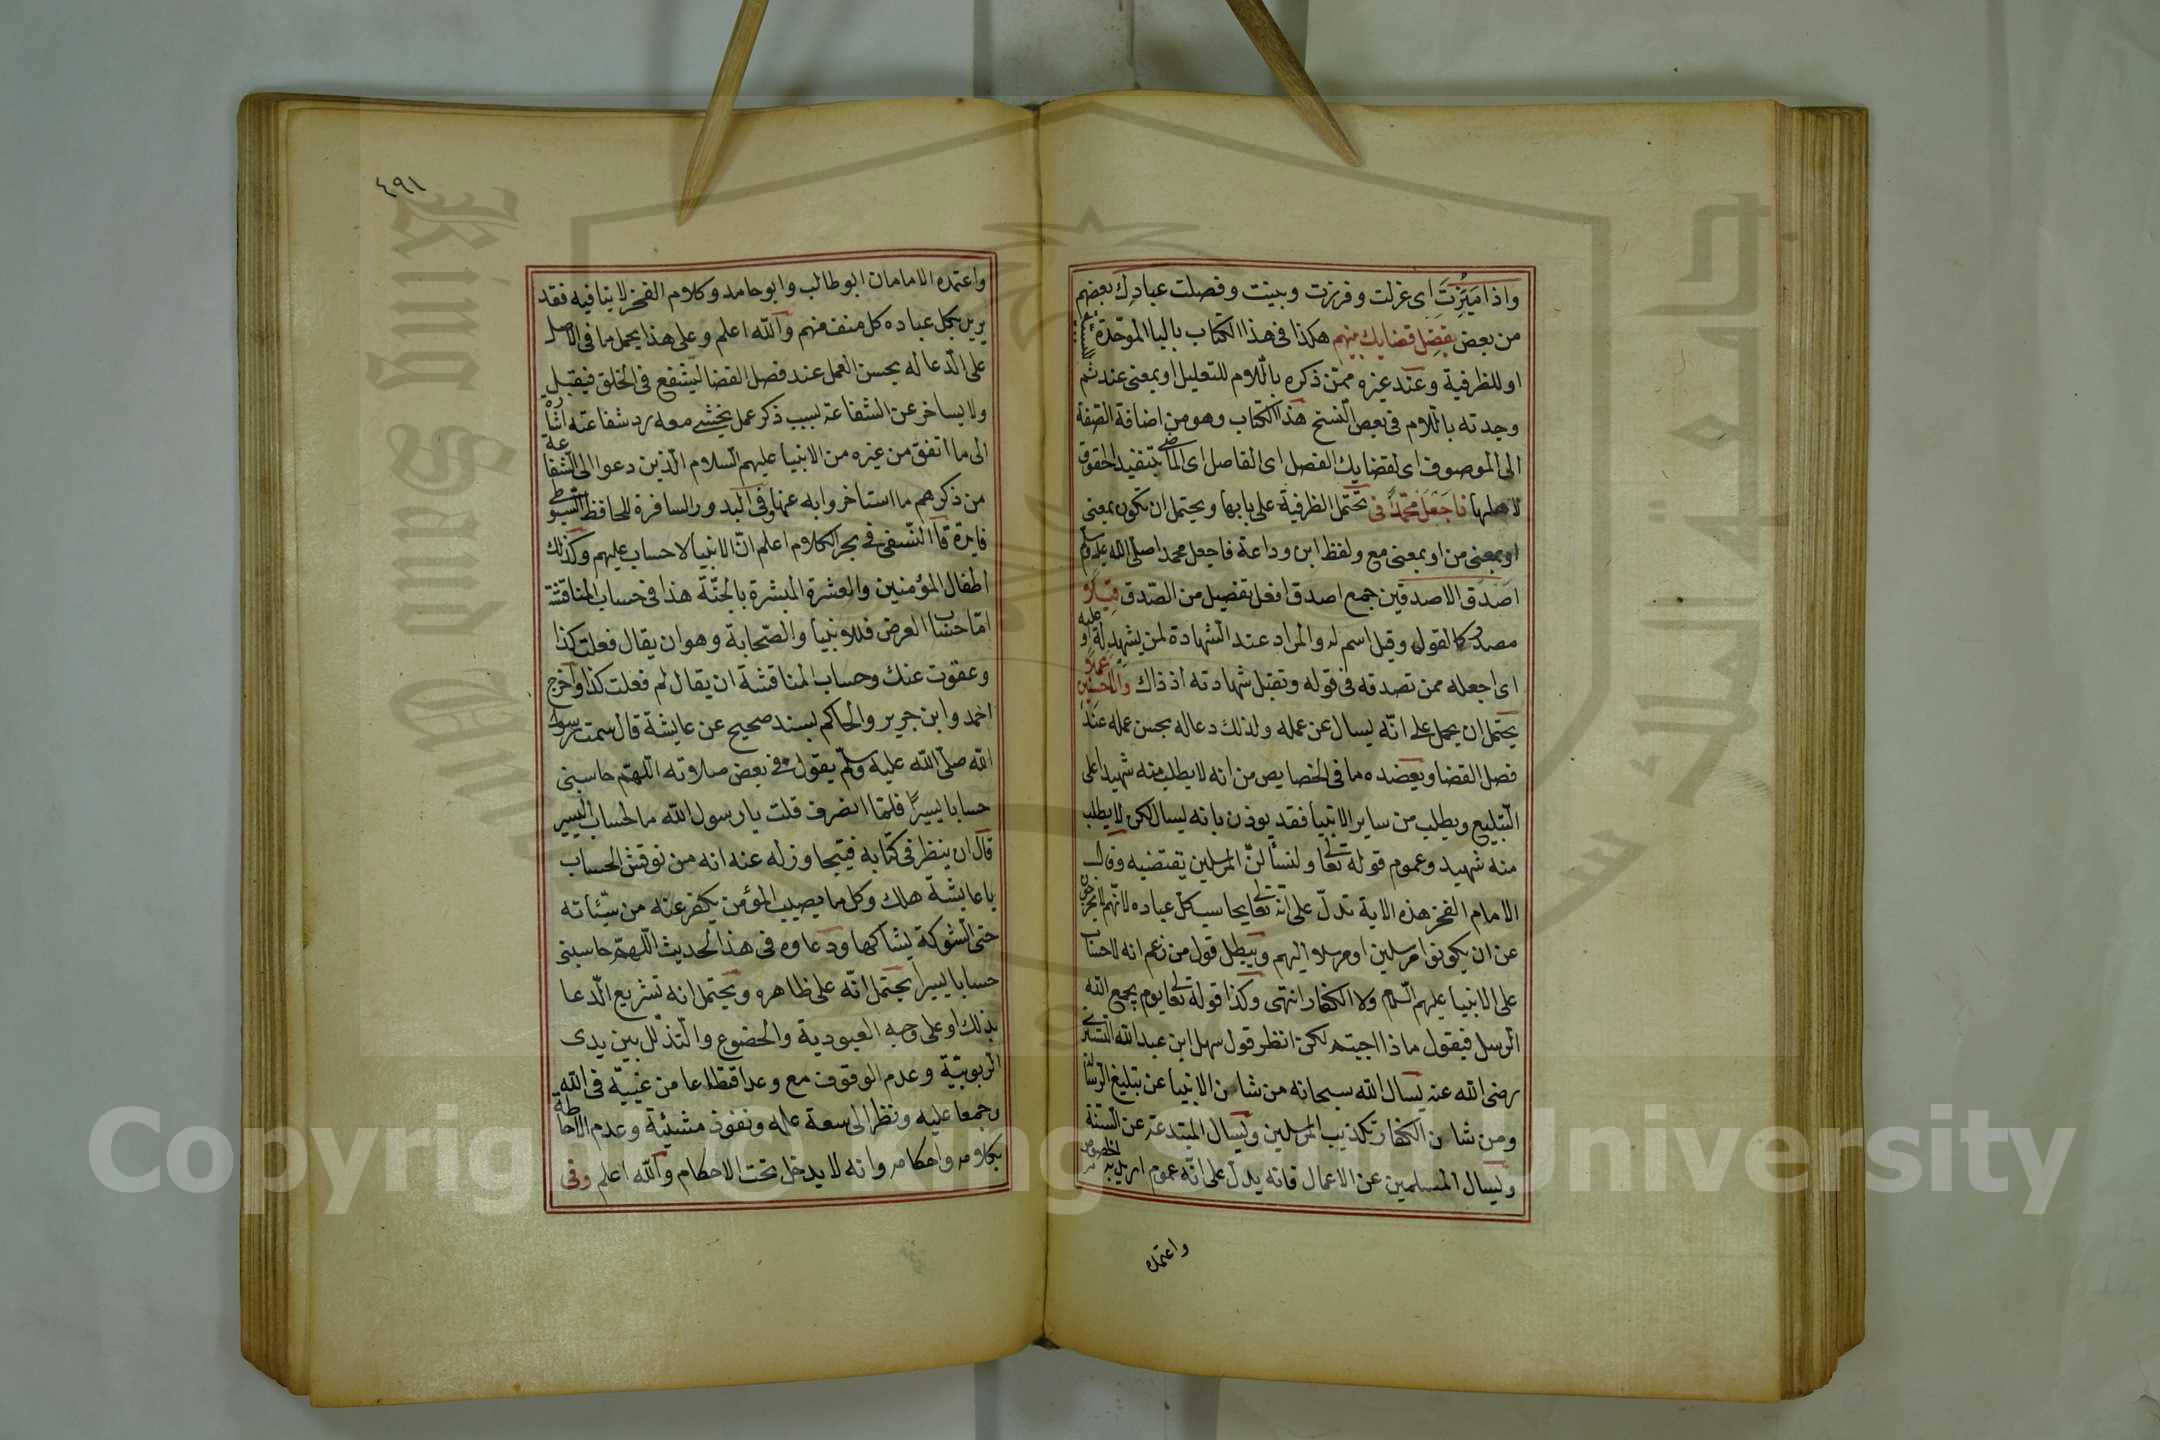 واذا ميزت اى عزلت وفرزت وبينت وفصلت عبادك بعضهم
من بعض بفصل قضايك بينهم هكذا فى هذا الكتاب بالبا الموحدة للسببية
او للظرفية وعند غيره ممن ذكره باللام للتعليل او بمعنى عند ثم
وجدته باللام فى بعض النسخ هذا الكتاب وهو من اضافة الصفة
الى الموصوف اى لقضايك الفصل اى الفاصل اى بتنفيذ الحقوق
لاهلها فاجعل محمدا فى تحتمل الظرفية على بابها ويحتمل ان تكون بمعنى
او بمعنى من او بمعنى مع ولفظ ابن وداعة فاجعل محمدا صلى الله عليه وسلم
اصدق الاصدقين جمع اصدق افعل تفضيل من الصدق قيلا
مصدر كالقول وقيل اسم له والمراد عند الشهادة لمن يشهد له او عليه
اى اجعله ممن تصدقه فى قوله وتقبل شهادته اذ ذاك والاحسنين عملا
يحتمل ان يحمل على انه يسال عن عمله ولذلك دعا له بحسن عمله عند
فصل القضا ويعضده ما فى الخصايص من انه لا يطلب منه شهيد على
التبليغ ويطلب من ساير الانبيا فقد يوذن بانه يسال لكن لا يطلب
منه شهيد وعموم قوله تعا ولنسألن المرسلين يقتضيه وقال
الامام الفخر هذه الاية تدل على انه تعا يحاسب كل عباده لانهم لا يخرجون
عن ان يكونوا مرسلين او مرسلا اليهم ويبطل قول من زعم انه لا حساب
على الانبيا عليهم السلام ولا الكفار انتهى وكذا قوله تعا يوم يجمع الله
الرسل فيقول ماذا اجبتم لكن انظر قول سهل ابن عبد الله التسترى
رضى الله عنه يسال الله سبحانه من شا من الانبيا عن تبليغ الرسالة
ومن شا من الكفار تكذيب المرسلين ويسال المبتدعة عن السنة
ويسال المسلمين عن الاعمال فانه يدل على انه عموم اريد به الخصوص
واعتمده
٤٩١
واعتمده الامامان ابو طالب وابو حامد وكلام الفخر لا ينافيه فقد
يريد بكل عباده كل صنف منهم والله اعلم وعلى هذا يحمل ما فى الاصل
على الدعا له بحسن العمل عند فصل القضا ليشفع فى الخلق فيقبل
ولا يستاخر عن الشفاعة بسبب ذكر عمل يخشى معه رد شفاعته اشارة
الى ما اتفق من غيره من الانبيا عليهم السلام الذين دعوا الى الشفاعة
من ذكرهم ما استاخروا به عنها وفى البدور السافرة للحافظ السيوطى
فايدة قال النسفى فى بحر الكلام اعلم ان الانبيا لا حساب عليهم وكذلك
اطفال المؤمنين والعشرة المبشرة بالجنة هذا فى حساب المناقشة
اما حساب العرض فللانبيا والصحابة وهو ان يقال فعلت كذا
وعفوت عنك وحساب المناقشة ان يقال لم فعلت كذا واخرج
احمد وابن جرير والحاكم بسند صحيح عن عايشة قال سمعت رسول
الله صلى الله عليه وسلم يقول فى بعض صلاته اللهم حاسبنى
حسابا يسيرا فلما انصرف قلت يا رسول الله ما الحساب اليسير
قال ان ينظر فى كتابه فيتجاوز له عنه انه من نوقش الحساب
يا عايشة هلك وكل ما يصيب المؤمن يكفر عنه من سيئاته
حتى الشوكة يشاكها ودعاوه فى هذا الحديث اللهم حاسبنى
حسابا يسيرا يحتمل انه على ظاهره ويحتمل انه تشريع الدعا
بذلك او على وجه العبودية والخضوع والتذلل بين يدى
الربوبية وعدم الوقوف مع وعد اقتطاعا من غيبية فى الله
وجمعا عليه ونظر الى سعة علمه ونفوذ مشئية وعدم الاحاطة
بكلامه واحكامه وانه لا يدخل تحت الاحكام والله اعلم وفى
King Saud University
جامعة الملك سعود
1957
Copyright © King Saud University